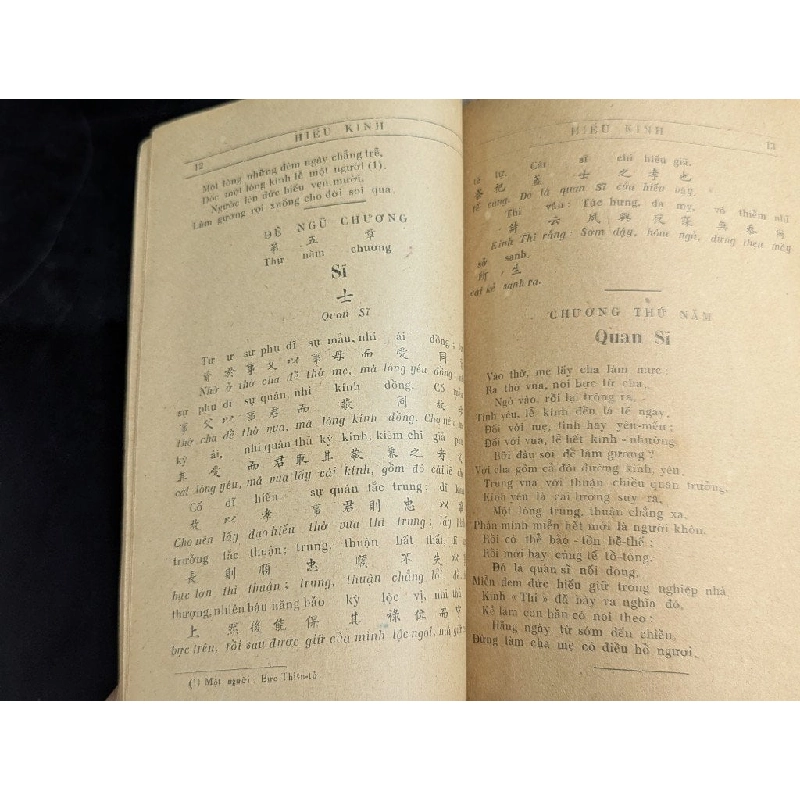 12
HIẾU KINH
Một lòng những đêm ngày chẳng trễ,
Dốc một lòng kính lễ một người (1).
Người lớn đức hiếu vẹn mười,
Làm gương rọi xuống cho đời soi qua.
ĐỆ NGŨ CHƯƠNG
第 五 章
Thứ năm chương
Sĩ
士
Quan Sĩ
Tư ư sự phụ dĩ sự mẫu, nhi ái đồng;
資 於 事 父 以 事 母 而 愛 同
Nhờ ở thờ cha để thờ mẹ, mà lòng yêu đồng
sự phụ dĩ sự quân, nhi kính đồng. Cố
事 父 以 事 君 而 敬 同 故
thờ cha để thờ vua, mà lòng kính đồng. Cho nên,
kỳ ái, nhi quân thủ kỳ kính, kiêm chi giả
其 愛 而 君 取 其 敬 兼 之 者 父
cái lòng yêu, mà vua lấy cái kính, gồm đó cái
Cố dĩ hiếu sự quân tắc trung; dĩ
故 以 孝 事 君 則 忠 以
Cho nên lấy đạo hiếu thờ vua thì trung; lấy
trưởng tắc thuận; trung, thuận bất thất,
長 則 順 忠 順 不 失 以
bực lớn thì thuận; trung, thuận chẳng lỗi,
thượng, nhiên hậu năng bảo kỳ lộc vị, nhi
上 然 後 能 保 其 祿 位 而
bực trên, rồi sau được giữ của mình lộc ngôi, mà giữ
(1) Một người: Bực Thiên-tử
HIẾU KINH
13
tế tự. Cái sĩ chi hiếu giã.
祭 祀 蓋 士 之 孝 也
tế cúng. Đó là quan Sĩ của hiếu vậy.
Thi vân: Túc hưng, dạ mỵ, vô thiểm nhĩ
詩 云 夙 興 夜 寐 無 忝 爾
Kinh Thi rằng: Sớm dậy, hôm ngủ, đừng thẹn mày
sở sanh.
所 生
cái kẻ sanh ra.
CHƯƠNG THỨ NĂM
Quan Sĩ
Vào thờ, mẹ lấy cha làm mực;
Ra thờ vua, noi bực từ cha,
Ngõ vào, rồi lại trông ra,
Tình yêu, lễ kính đến là tế ngay.
Đối với mẹ, tình hay yên-mến;
Đối với vua, lễ hết kính-nhường.
Bởi đâu soi để làm gương?
Với cha gồm cả đôi đường kính, yêu.
Trung vua với thuận chiều quan trưởng,
Kính yêu là cái tương suy ra,
Một lòng trung, thuận chẳng xa,
Phận mình miễn hết mới là người khôn.
Rồi có thể bảo-tồn bề-thế;
Rồi mới hay cúng tế tổ-tông.
Đó là quan sĩ nối dòng,
Miễn đem đức hiếu giữ trong nghiệp nhà
Kinh «Thi» đã bày ra nghĩa đó,
Kẻ làm con hẳn có noi theo:
Hằng ngày từ sớm đến chiều,
Đừng làm cha mẹ có điều hổ ngươi.